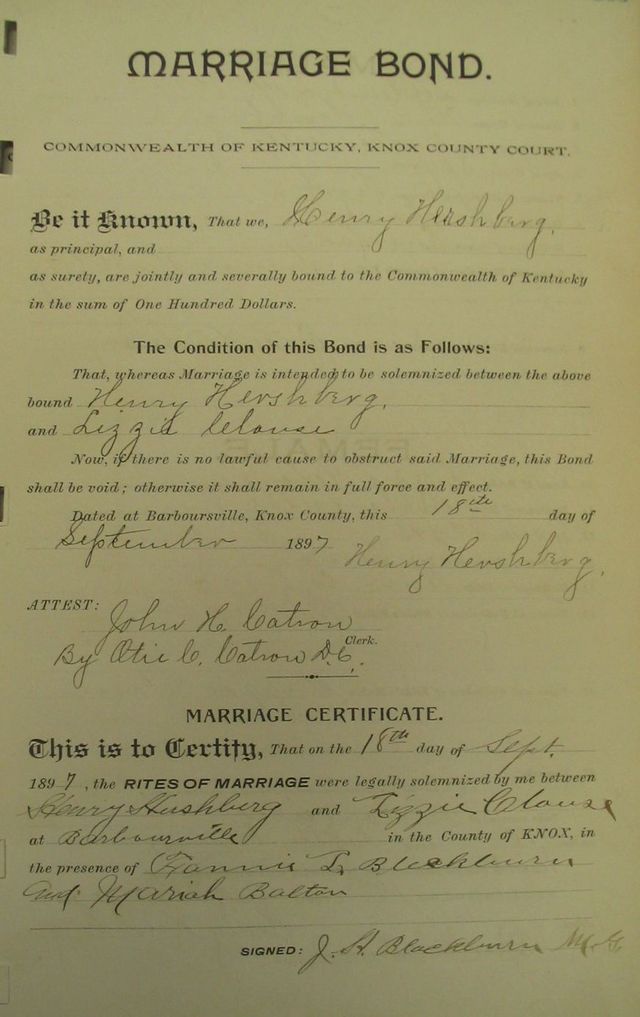 MARRIAGE BOND.
COMMONWEALTH OF KENTUCKY, KNOX COUNTY COURT.
Be it Known, That we, Henry Hershberg,
as principal, and
as surety, are jointly and severally bound to the Commonwealth of Kentucky
in the sum of One Hundred Dollars.
The Condition of this Bond is as Follows:
That, whereas Marriage is intended to be solemnized between the above
bound Henry Hershberg,
and Lizzie Clouse
Now, if there is no lawful cause to obstruct said Marriage, this Bond
shall be void; otherwise it shall remain in full force and effect.
Dated at Barboursville, Knox County, this 18th day of
September 1897 Henry Hershberg,
ATTEST: John H. Catron
Clerk.
By Otie C. Catron D.C.
MARRIAGE CERTIFICATE.
This is to Certify, That on the 18th day of Sept.
1897, the RITES OF MARRIAGE were legally solemnized by me between
Henry Hershberg and Lizzie Clouse
at Barbourville in the County of KNOX, in
the presence of Fannie L. Blackburn
and Mariah Balton
SIGNED: J. H. Blackburn M.G.